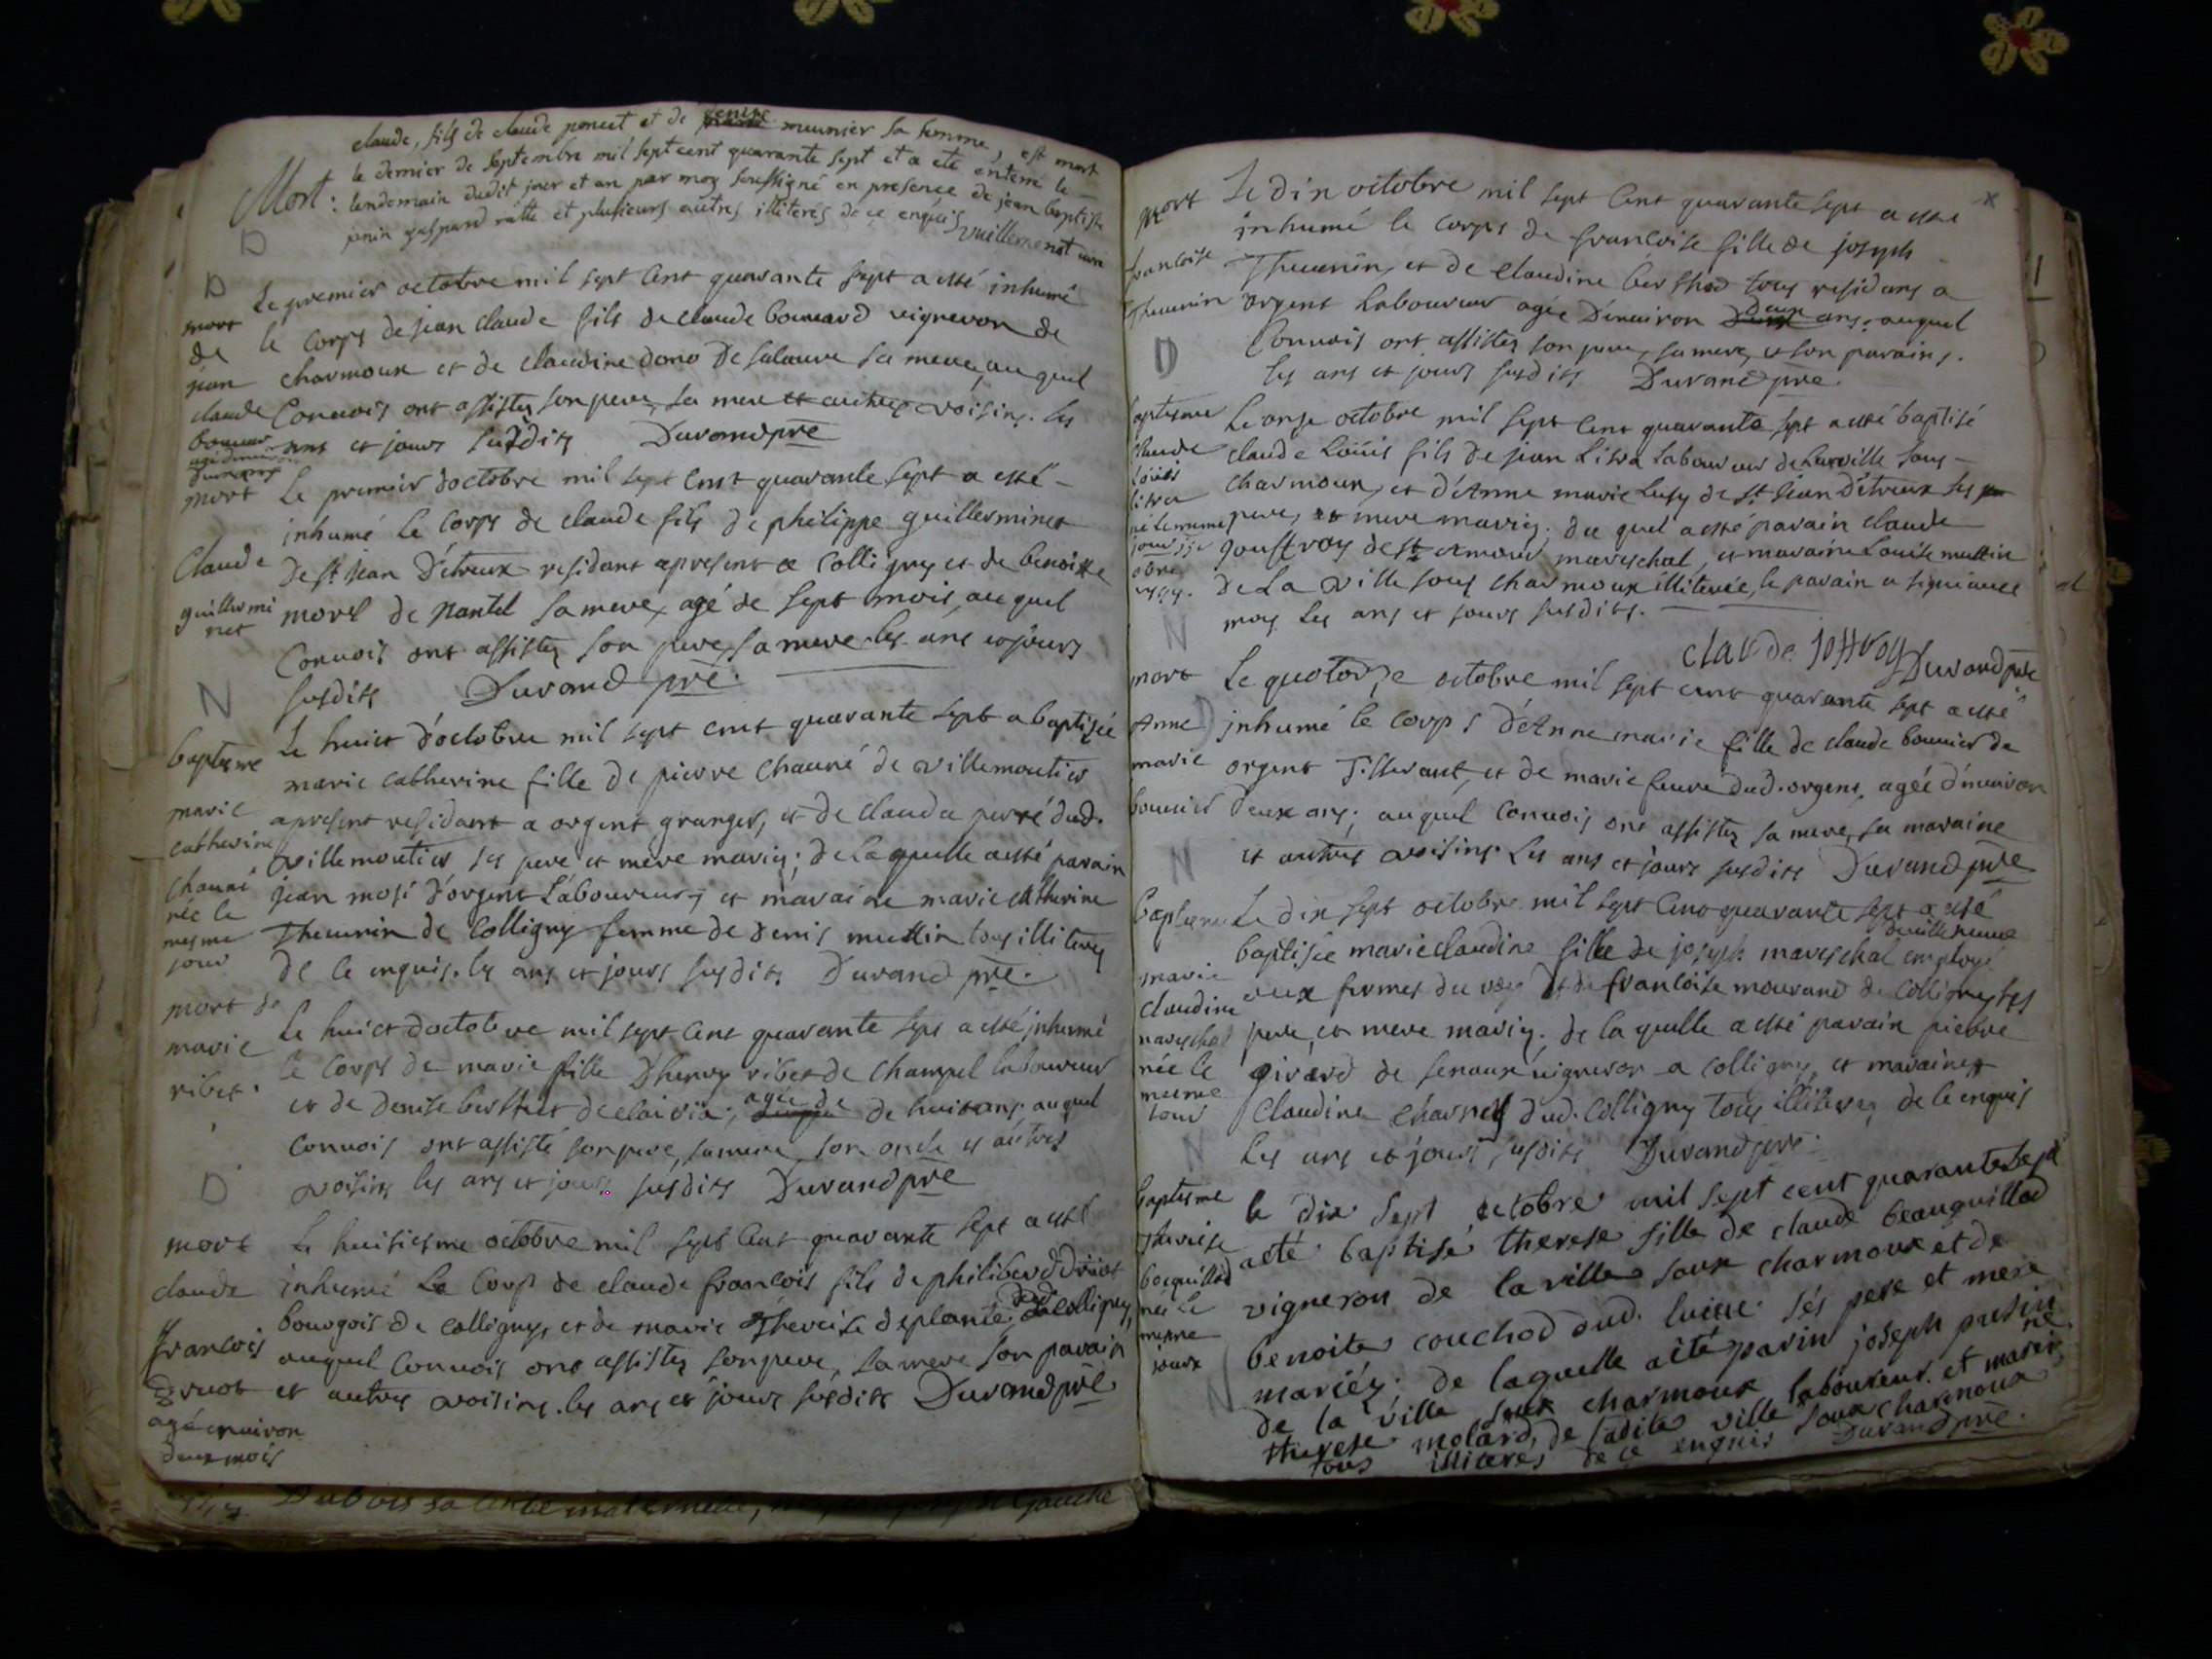 claude, fils de claude poncet et de denise meunier sa femme, est mort
le dernier de septembre mil sept cent quarante sept et a eté enterré le
Mort : lendemain dudit jour et an par moy soussigné en presence de jean baptiste
panin gaspard ratte et plusieurs autres illiterés de ce enquis vuillemenot curé
D
D
mort de jean claude
Le premier octobre mil sept cent quarante sept a esté inhumé
le corps de jean claude fils de claude vigneron de
charmoux et de claudine sa mere, au quel
Convois ont assistez son pere, sa mere et autres voisins. les
ans et jours susdits Durand pre
mort
Claude
guillermi
net
le premier d'octobre mil sept cent quarante sept a esté
inhumé le corps de claude fils de philippe guillerminet
de st jean d'étreux residant apresent a colligny et de benoitte
morel de nantel sa mere, agé de sept mois, au quel
Convois ont assistez son pere, sa mere les ans et jours
susdits Durand pre.
N
baptesme
marie
catherine
chauné
née le
mesme
jour
Le huict d'octobre mil sept cent quarante sept a baptizée
marie catherine fille de pierre chauné de villemoutier
apresent residant a orgent granger, et de claudea perré dud.
villemoutier ses pere et mere mariez; de laquelle a esté parain
jean d'orgent Laboureur; et maraine marie catherine
Theuenin de Colligny femme de denis muttin tous illiterez
de ce enquis. les ans et jours susdits Durand pre.
mort de
marie
ribet.
le huict d'octobre mil sept cent quarante sept a esté inhumé
le corps de marie fille ribet de laboureur
et de denise agée de de huit ans; au quel
convois ont assisté son pere, sa mere, son oncle et autres
voisins les ans et jours susdits Durand pre
D
mort
claude
francois
druot
agé enuiron
deux mois
Le huitiesme octobre mil sept cent quarante sept a esté
inhumé Le Corps de claude francois fils de philiberd druot
bourgois de colligny, et de marie Thereise deplante dud. colligny,
auquel Convois ont assistez son pere, sa mere son parain
et autres voisins. les ans et jours susdits Durand pre
mort
francoise
Theuenin
D
Le dix octobre mil sept cent quarante sept a esté
inhumé le corps de francoise fille de joseph
Theuenin, et de claudine tous residans a
orgent laboureur agée d'enuiron deux ans; auquel
Convois ont assistez son pere, sa mere, et son parains.
les ans et jours susdits Durand pre.
baptesme
claude
louis
né le mesme
jour
Le onze octobre mil sept cent quarante sept a esté baptisé
claude Louis fils de jean laboureur de Laville sous
charmoux, et d'Anne marie de st jean d'étreux ses
pere, et mere mariez; du quel a esté parain claude
gouffroy de st amour mareschal, et maraine Louise muttin
de La ville sous charmoux illiterée, le parain a signé auec
moy les ans et jours susdits.
claude joffroy Durand pre
N
mort
Anne
marie
bouuier
Le quatorze octobre mil sept cent quarante sept a esté
inhumé le corps d'Anne marie fille de claude bouuier de
orgent Tisserant, et de marie feure dud. orgent, agée d'enuiron
deux ans; auquel convois ont assistez sa mere, sa maraine
et autres voisins. Les ans et jours susdits Durand pre
N
baptesme
marie
claudine
mareschal
née le
meme
jour
Le dix sept octobre mil sept cent quarante sept a esté
baptisée marie claudine fille de joseph mareschal employé
aux fermes du roy et de francoise mourand de Colligny ses
pere, et mere mariez; de la quelle a esté parain pierre
girard de senaux vigneron a colligny, et maraine
Claudine dud. Colligny tous illiterez de ce enquis
Les ans et jours susdits Durand pre.
N
baptesme
Thereise
née le
mesme
jour
N
le dix sept octobre mil sept cent quarante sept
a eté baptisé therese fille de claude beauquillod
vigneron de la ville soux charmoux et de
benoite couchod dud. ses pere et mere
mariéz; de laquelle a eté parin joseph
de la ville soux charmoux laboureur. et marine
therese molard, de ladite ville soux charmoux
tous illiterés de ce enquis Durand pre.